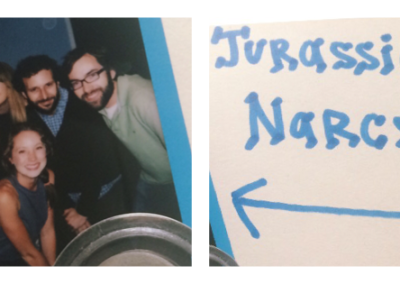 Jurassi
Narcs